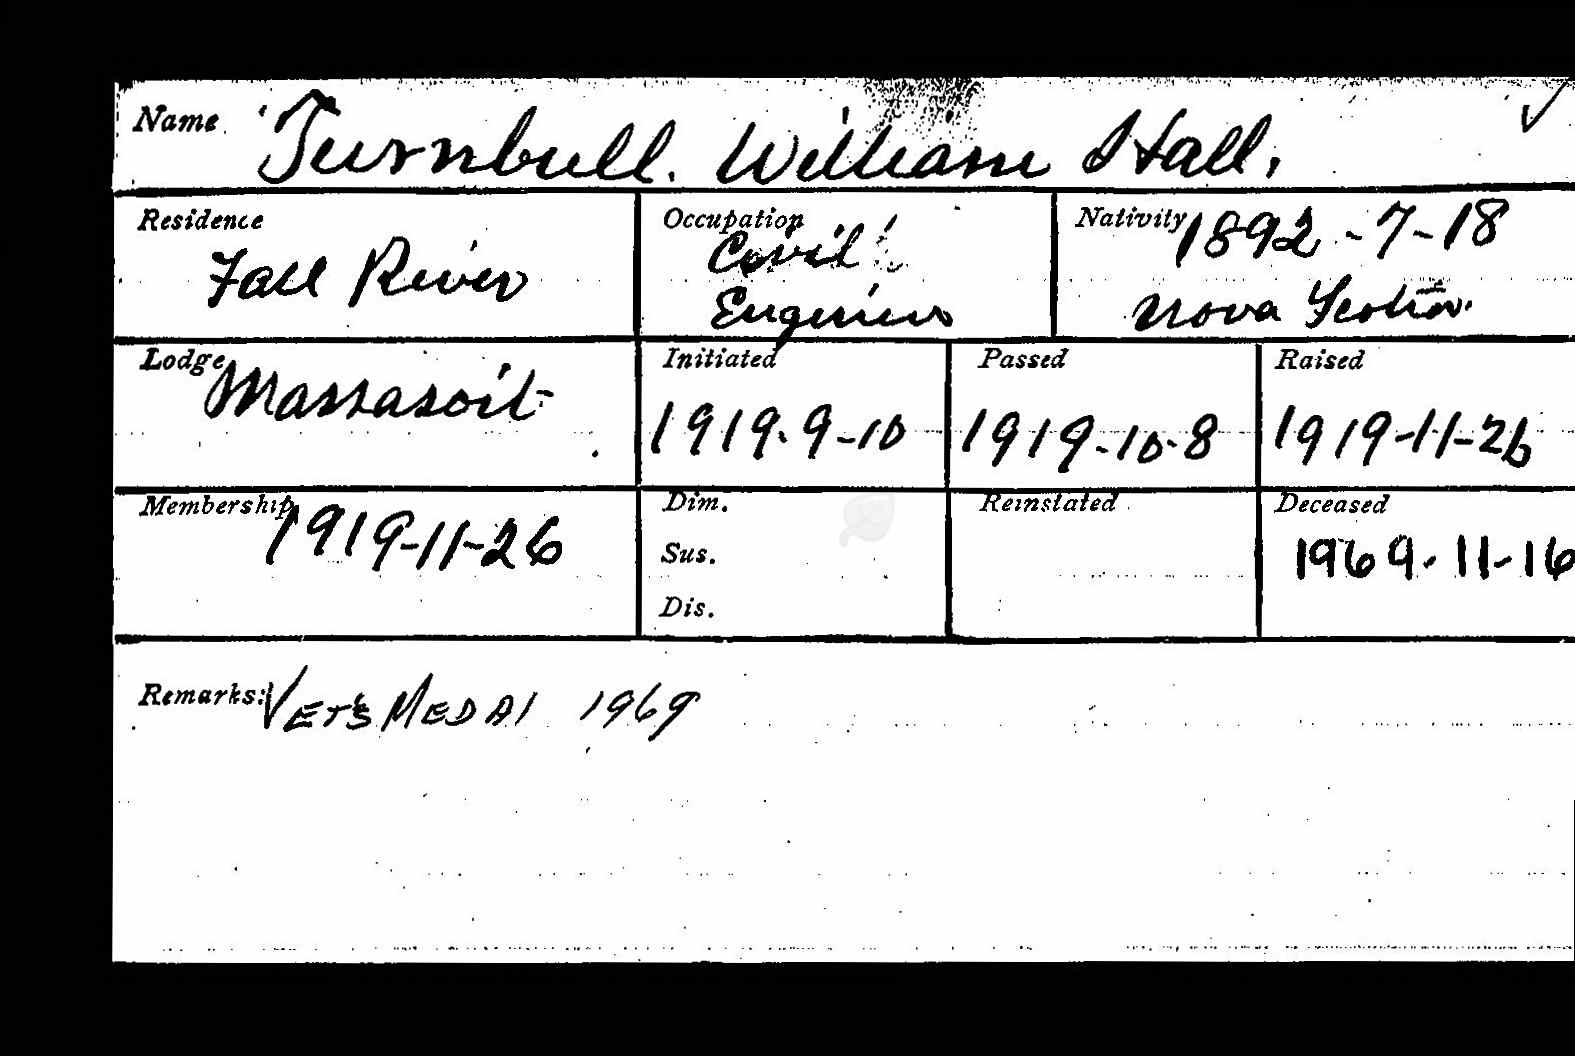 Name Turnbull. William Hall.
Residence Occupation Nativity 1892-7-18
Fall River Civil
Engineer Nova Scotia.
Lodge Initiated Passed Raised
Massasoit
1919-9-10 1919-10-8 1919-11-26
Membership Dim. Reinstated Deceased
1919-11-26 Sus. 1969-11-16
Dis.
Remarks: VETS MEDAL 1969